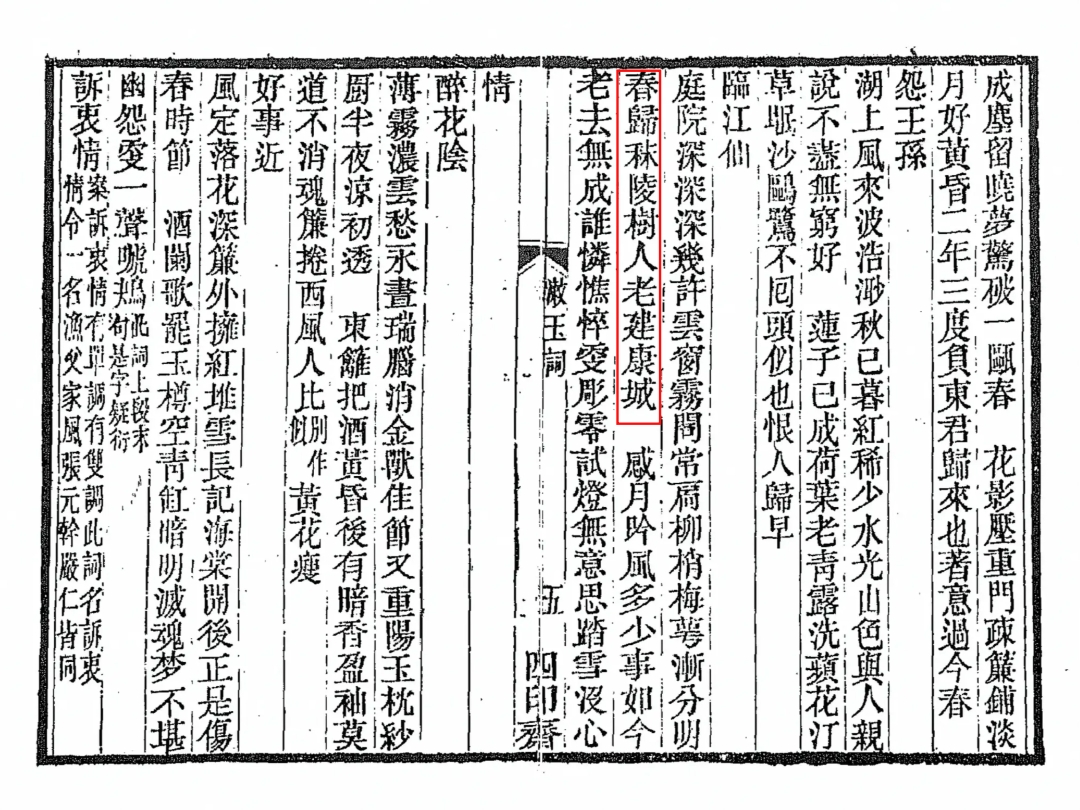 成塵留曉夢驚破一甌春　花影壓重門疎簾鋪淡
月好黃昏二年三度負東君歸來也著意過今春
怨王孫
湖上風來波浩渺秋已暮紅稀少水光山色與人親
說不盡無窮好　蓮子已成荷葉老靑露洗蘋花汀
草眠沙鷗鷺不回頭似也恨人歸早
臨江仙
庭院深深深幾許雲窗霧閣常扃柳梢梅萼漸分明
春歸秣陵樹人老建康城　感月吟風多少事如今
老去無成誰憐憔悴更彫零試燈無意思踏雪沒心
漱玉詞　五　四印齋
情
醉花陰
薄霧濃雲愁永晝瑞腦消金獸佳節又重陽玉枕紗
厨半夜涼初透　東籬把酒黃昏後有暗香盈袖莫
道不消魂簾捲西風人比別作似黃花瘦
好事近
風定落花深簾外擁紅堆雪長記海棠開後正是傷
春時節　酒闌歌罷玉樽空靑缸暗明滅魂夢不堪
幽怨更一聲嗁鴂此詞上段末句是字疑衍
訴衷情案訴衷情有單調有雙調此詞名訴衷情令一名漁父家風張元幹嚴仁皆同